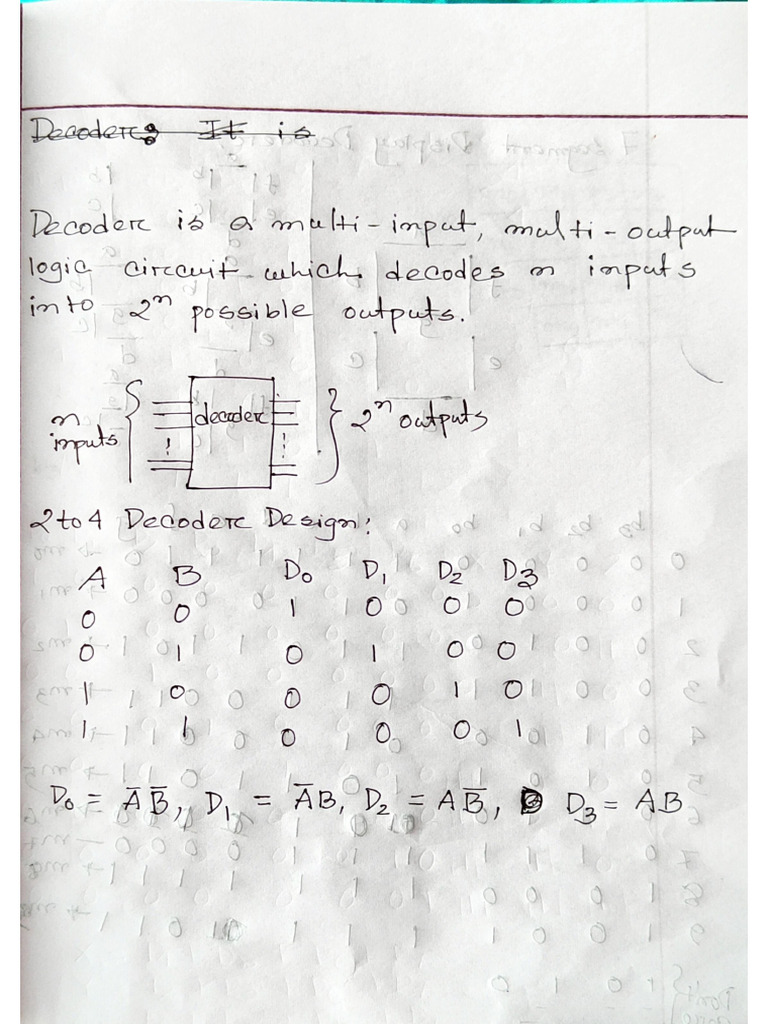 Decoder: It is
Decoder is a multi-input, multi-output
logic circuit which decodes n inputs
into 2ⁿ possible outputs.
n inputs
decoder
2ⁿ outputs
2 to 4 Decoder Design:
A B D₀ D₁ D₂ D₃
0 0 1 0 0 0
0 1 0 1 0 0
1 0 0 0 1 0
1 1 0 0 0 1
D₀ = A̅ B̅, D₁ = A̅ B, D₂ = A B̅, D₃ = AB